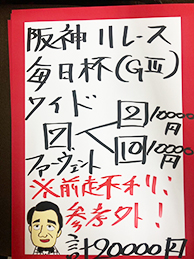 阪神11レース
毎日杯(GⅢ)
ワイド
7 < 2 10000円
10 10000円
ファーヴェント
※前走不利;
参考外!
計20000円